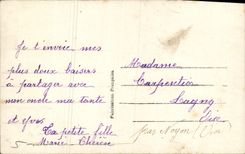 Je t'envoie mes
plus doux baisers
à partager avec
mon mole ma tante
et Yves
Ta petite fille
Marie Thérèse
Madame
Lagny
Oise
par Noyon (Oise)